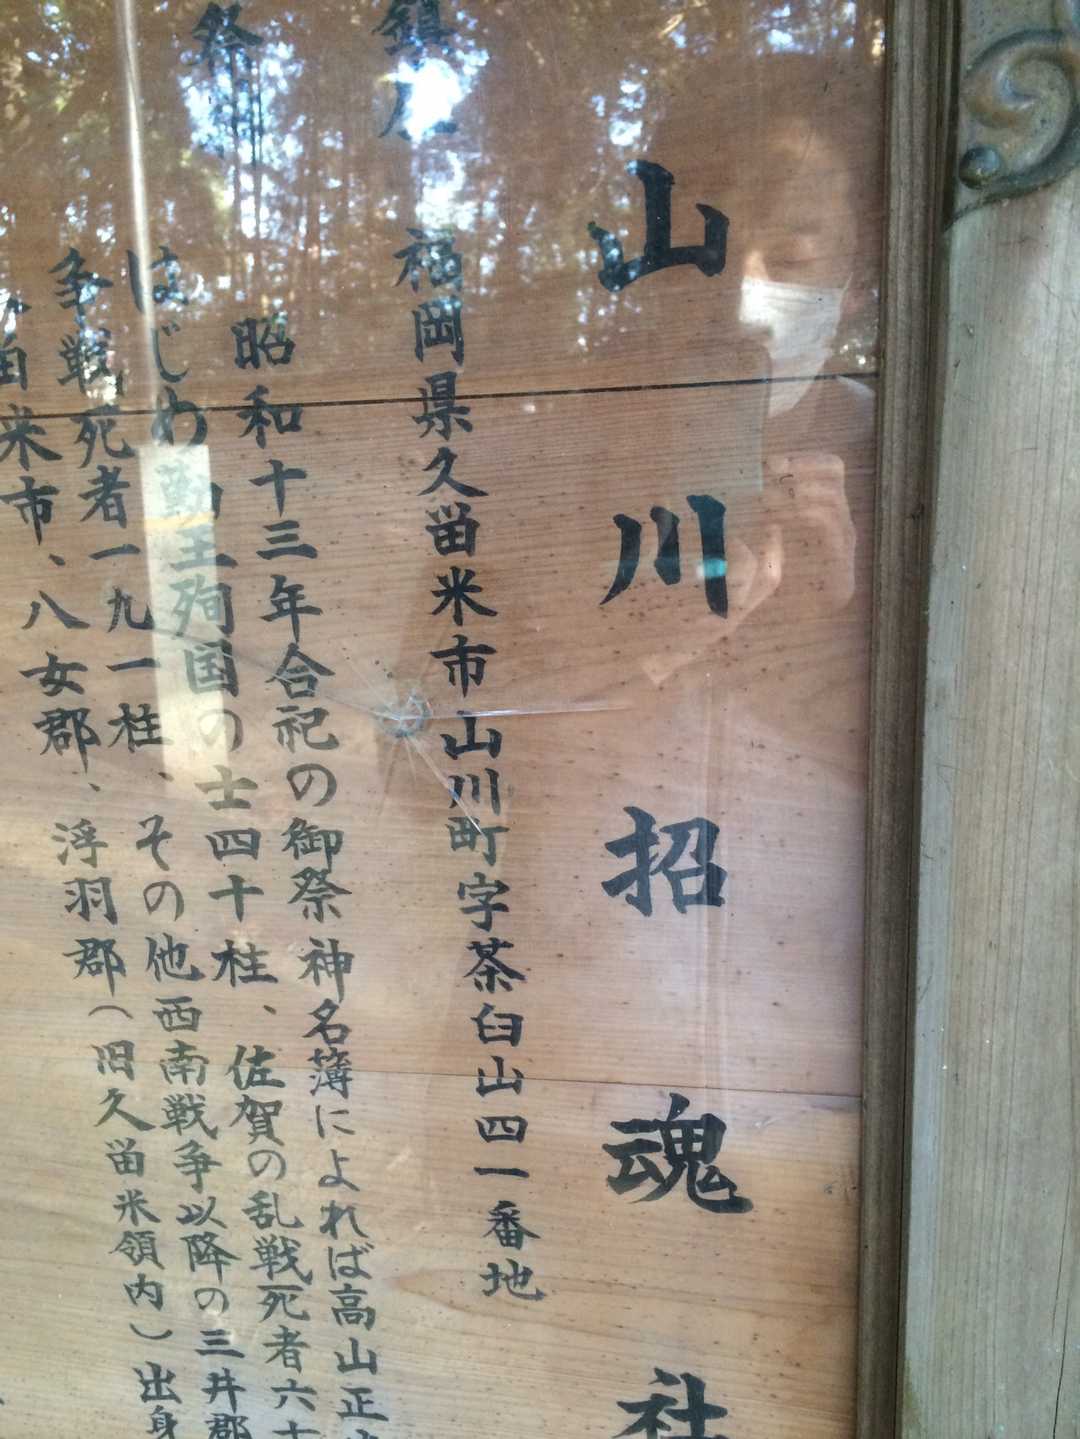 山川招魂社
鎮座 福岡県久留米市山川町字茶臼山四一番地
祭 昭和十三年合祀の御祭神名簿によれば高山正
はじめ勤王殉国の士四十柱、佐賀の乱戦死者六十
争戦死者一九一柱、その他西南戦争以降の三井郡
留米市、八女郡、浮羽郡（旧久留米領内）出身